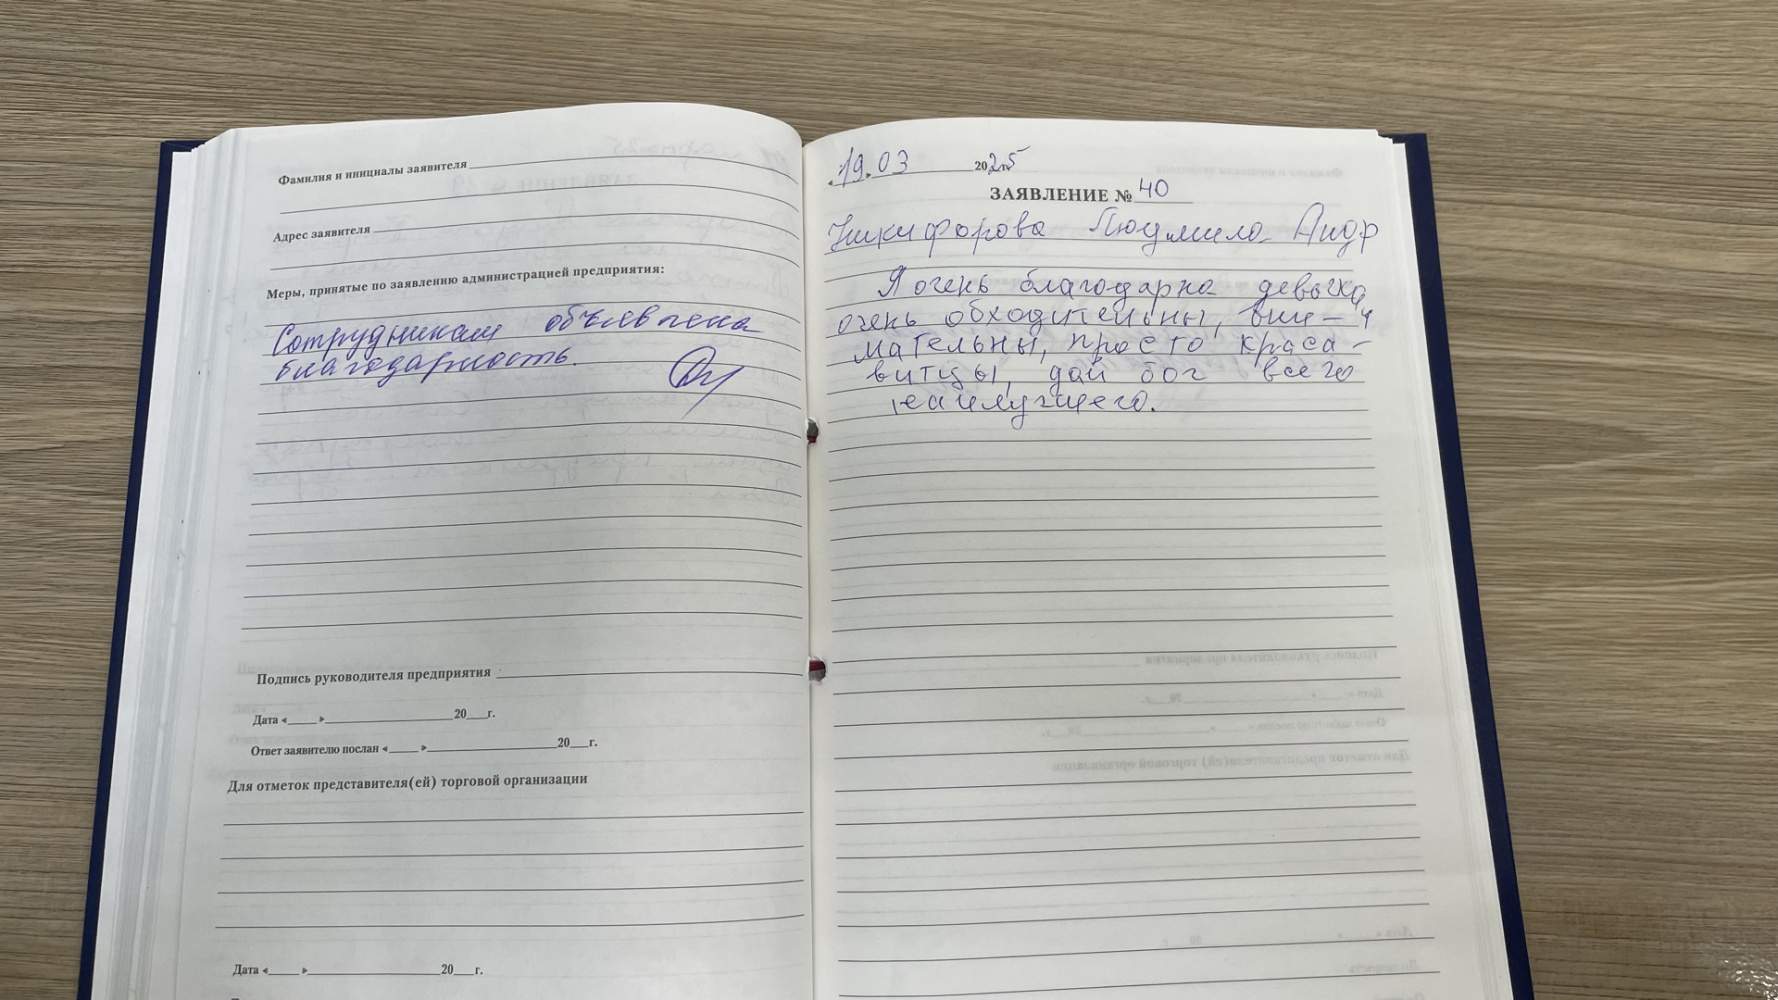 Фамилия и инициалы заявителя
Адрес заявителя
Меры, принятые по заявлению администрацией предприятия:
Сотрудникам объевлена
благодарность.
Подпись руководителя предприятия
Дата «____» ____ 20___г.
Ответ заявителю послан «____» ____ 20___г.
Для отметок представителя(ей) торговой организации
Дата «____» ____ 20___г.
19.03 2025
ЗАЯВЛЕНИЕ № 40
Никифорова Людмила Андр
Я очень благодарна девочкам
очень обходительны, вни-
мательны, просто краса-
витцы, дай бог всего
наилучшего.